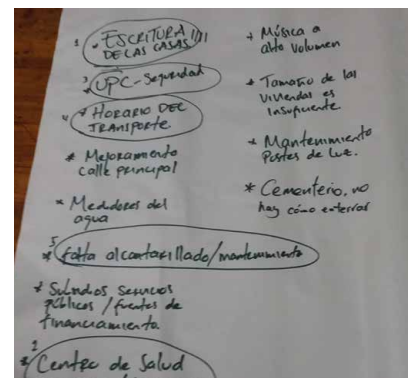 1 * ESCRITURA !!!!
DE LAS CASAS
3 * UPC - Seguridad
4 * HORARIO DEL
TRANSPORTE.
* Mejoramiento
calle principal
* Medidores del
agua
5 * falta alcantarillado/mantenimiento
* Subsidios servicios
públicos / fuentes de
financiamiento.
2 * Centro de Salud
* Música a
alto volumen
* Tamaño de las
viviendas es
insuficiente.
* Mantenimiento
Postes de luz.
* Cementerio, no
hay cómo enterrar